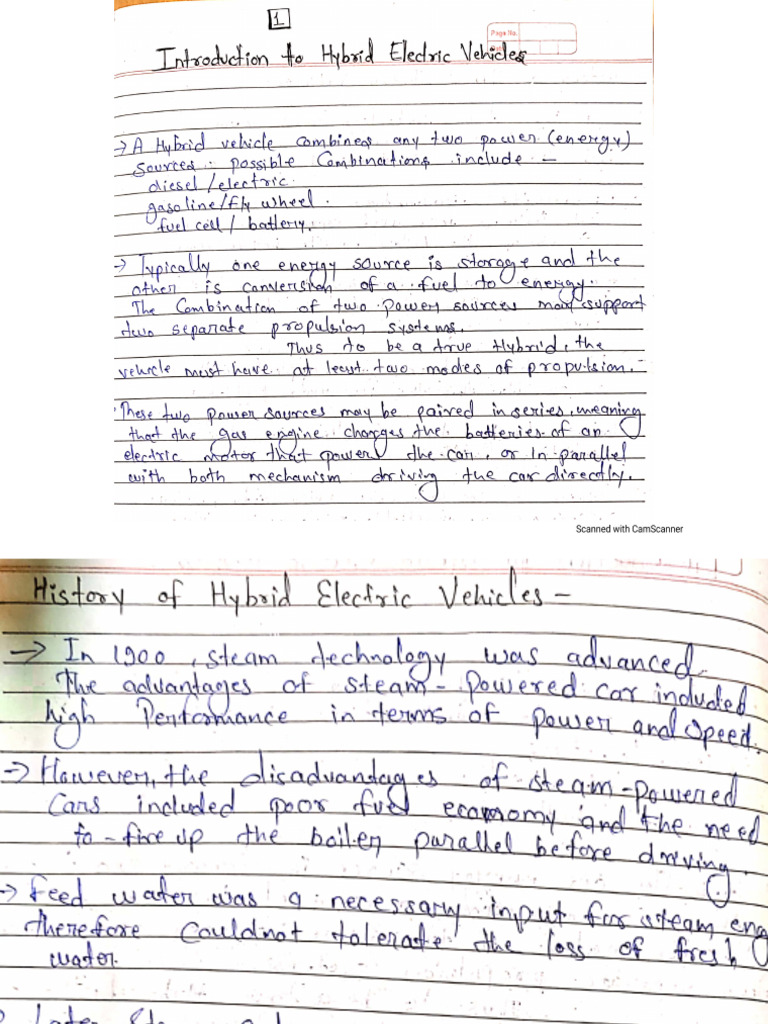 1
Page No.
Introduction to Hybrid Electric Vehicles
→ A Hybrid vehicle combines any two power (energy)
sources. Possible Combinations include –
diesel/electric.
gasoline/fly wheel.
fuel cell/battery.
→ Typically one energy source is storage and the
other is conversion of a fuel to energy.
The Combination of two power sources may support
two separate propulsion systems.
Thus to be a true Hybrid, the
vehicle must have at least two modes of propulsion.
These two power sources may be paired in series, meaning
that the gas engine charges the batteries of an
electric motor that power the car, or in parallel
with both mechanism driving the car directly.
Scanned with CamScanner
History of Hybrid Electric Vehicles –
→ In 1900, steam technology was advanced.
The advantages of steam-powered car included
high Performance in terms of power and speed.
→ However, the disadvantages of steam-powered
Cars included poor fuel economy and the need
to - fire up the boiler parallel before driving.
→ Feed water was a necessary input for steam eng
therefore couldnot tolerate the loss of fresh
water.